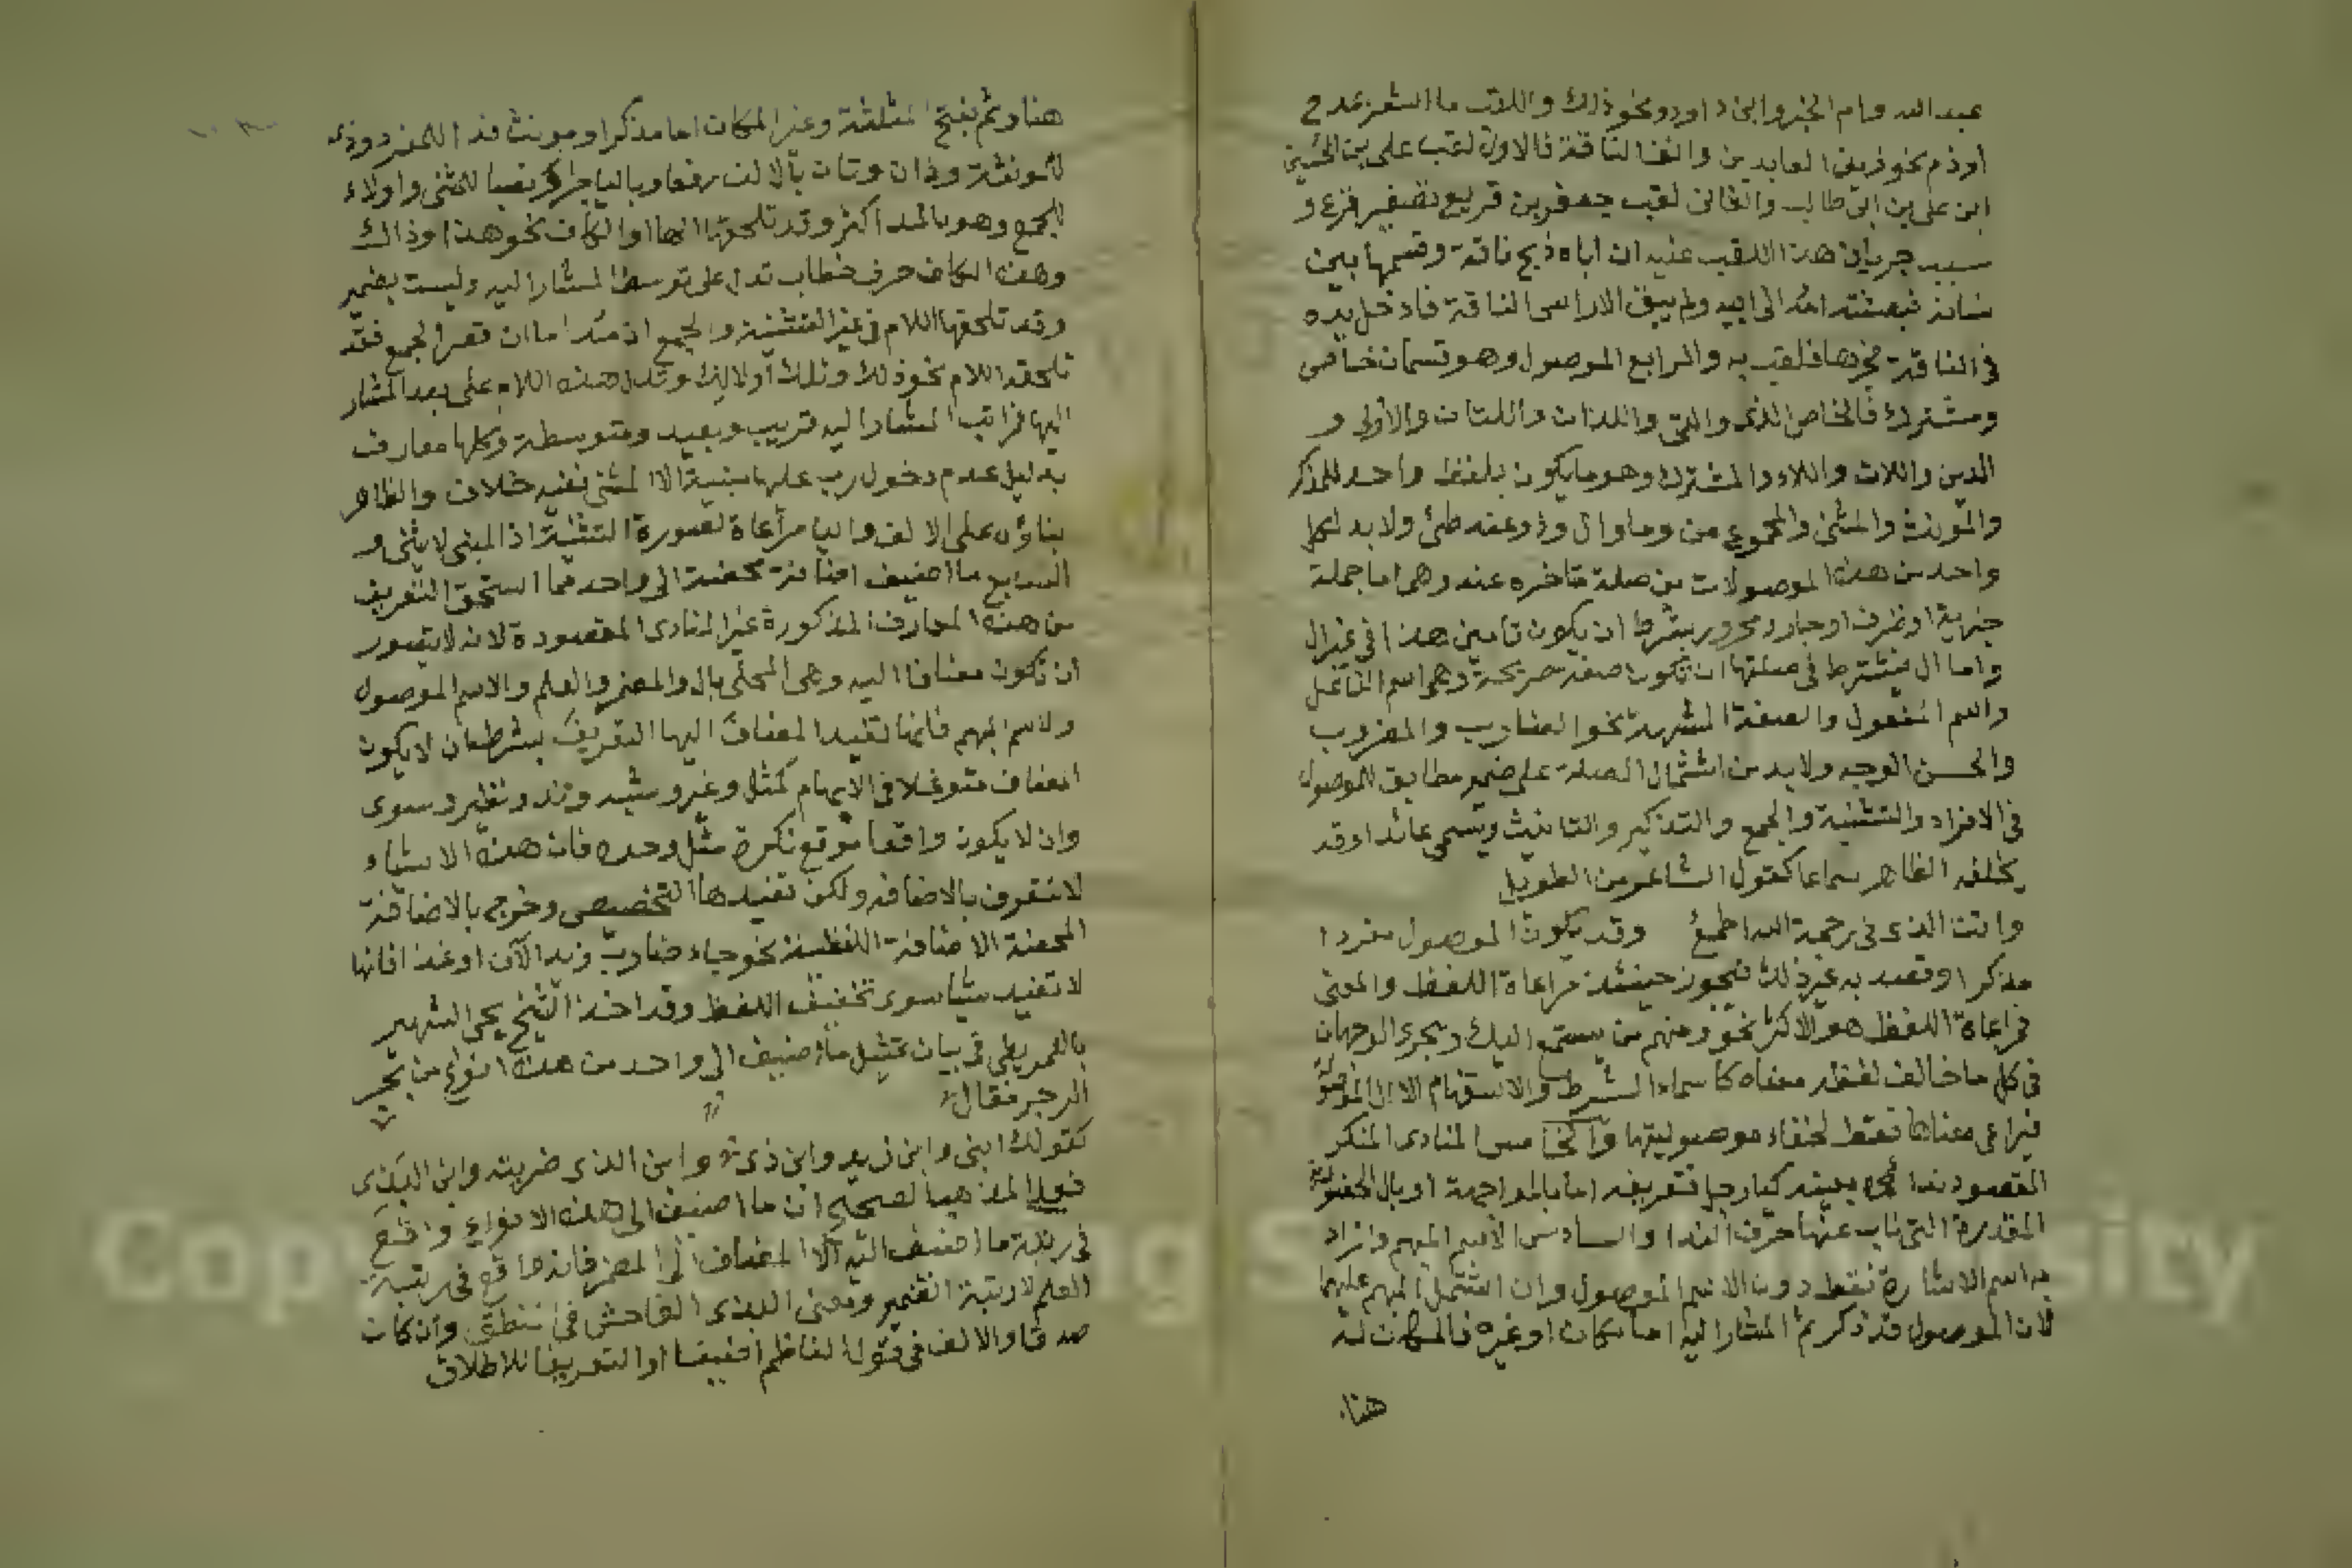 عبد الله وام الخير وابن داود ونحو ذلك واللقب ما اشعر بمدح
او ذم نحو زين العابدين وانف الناقة فالاول لقب علي بن الحسين
ابن علي بن ابي طالب والثاني لقب جعفر بن قريع تصغير قرع و
سبب جريان هذا اللقب عليه ان اباه ذبح ناقة وقسمها بين
نسائه فبعثته امه الى ابيه ولم يبق الا راس الناقة فادخل يده
في الناقة فجرها فلقب به والرابع الموصول وهو قسمان خاص
ومشترك فالخاص الذي والتي واللذان واللتان والاولى و
الذين واللات واللاء والمشترك وهو ما يكون بلفظ واحد للمذكر
والمونث والمثنى والمجموع من وما وال وذو عند طئ ولا بد لكل
واحد من هذه الموصولات من صلة متاخره عنه وهي اما جملة
خبرية او ظرف او جار ومجرور بشرط ان يكون تامين هذا في غير ال
واما ال فيشترط في صلتها ان تكون صفة صريحة وهي اسم الفاعل
واسم المفعول والصفة المشبهة نحو الضارب والمضروب
والحسن الوجه ولا بد من اشتمال الصلة على ضمير مطابق للموصول
في الافراد والتثنية والجمع والتذكير والتانيث ويسمى عائدا وقد
يخلفه الظاهر سماعا كقول الشاعر من الطويل
وانت الذي في رحمة الله اطمع وقد يكون الموصول مفردا
مذكرا وقصد به غير ذلك فيجوز حينئذ مراعاة اللفظ والمعنى
فمراعاة اللفظ هو الاكثر نحو ومنهم من يستمع اليك ويجري الوجهان
في كل ما خالف لفظه معناه كاسماء الشرط والاستفهام الا ال الموصولة
فيراعى معناها فقط لخفاء موصوليتها والخامس المنادى المنكر
المقصود نداؤه بعينه كيا رجل فتعريفه اما بالمواجهة او بال الحضورية
المقدرة التي ناب عنها حرف الندا والسادس الاسم المبهم واراد
به اسم الاشارة فقط دون الاسم الموصول وان اشتمل المبهم عليهما
لان الموصول قد ذكر ثم المشار اليه اما مكان او غيره فالمكان له
هنا
هنا وثم بفتح المثلثة وغير المكان اما مذكر او مونث فذا للمفرد وذي
للمونثة وذان وتان بالالف رفعا وباليا جرا ونصبا للمثنى واولاء
للجمع وهو بالمد اكثر وقد تلحقها الها او الكاف نحو هذا وذاك
وهذه الكاف حرف خطاب تدل على توسط المشار اليه وليست بضمير
وقد تلحقها اللام في غير التثنية والجمع اذ مد اما ان قصر الجمع فقد
تلحقه اللام نحو ذلك وتلك اولالك وتدل هذه اللام على بعد المشار
اليها فمراتب المشار اليه قريب وبعيد ومتوسطة وكلها معارف
بدليل عدم دخول رب عليها مبنية الا المثنى ففيه خلاف والظاهر
بناؤه على الالف واليا مراعاة لصورة التثنية اذ المبنى لا يثنى و
السابع ما اضيف اضافة محضة الى واحد مما استحق التعريف
من هذه المعارف المذكورة غير المنادى المقصودة لانه لا يتصور
ان تكون مضافا اليه وهي المحلى بال والمضمر والعلم والاسم الموصول
والاسم المبهم فانها تفيد المضاف اليها التعريف بشرط ان لا يكون
المضاف متوغلا في الابهام كمثل وغير وشبه وند ونظير وسوى
وان لا يكون واقعا موقع نكرة مثل وحده فان هذه الاشياء
لا تتعرف بالاضافه ولكن تفيدها التخصيص وخرج بالاضافة
المحضة الاضافة اللفظية نحو جاء ضارب زيد الآن او غدا فانها
لا تفيد شيا سوى تخفيف اللفظ وقد اخذ الشيخ يحيى الشهير
بالعمريطي في بيان تمثيل ما اضيف الى واحد من هذه انواع من بحر
الرجز فقال
كقولك ابني وابن زيد وابن ذي وابن الذي ضربته وابن البذي
فعلى المذهب الصحيح ان ما اضيف الى هذه الانواع واقع
في رتبة ما اضيف اليه الا المضاف الى المضمر فانه واقع في رتبة
العلم لا رتبة الضمير ومعنى البذي الفاحش في نطقه وان كان
صدقا والالف في قول الناظم اضيفا او التعريفا للاطلاق
Copy ng S University